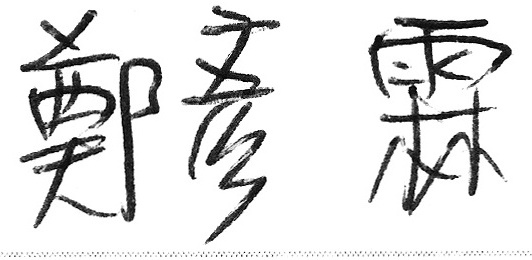 鄭彥霖